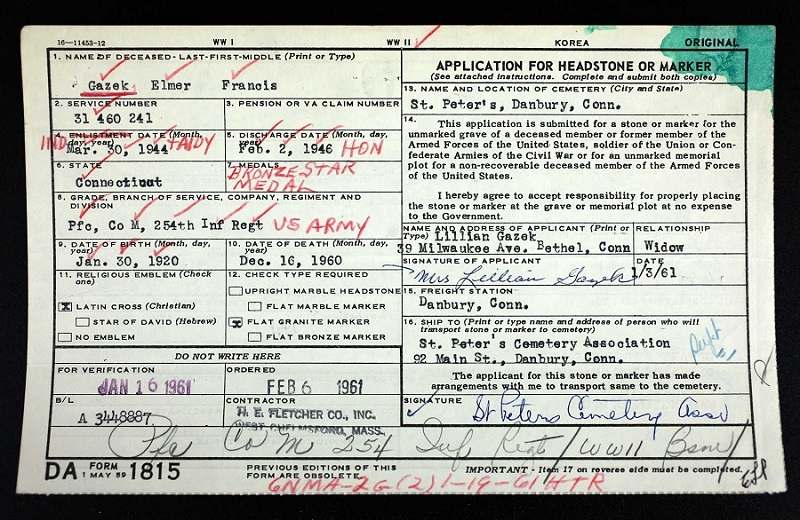 16—11453-12 WW I WW II KOREA ORIGINAL
1. NAME OF DECEASED-LAST-FIRST-MIDDLE (Print or Type)
Gazek Elmer Francis
2. SERVICE NUMBER
31 460 241
3. PENSION OR VA CLAIM NUMBER
4. ENLISTMENT DATE (Month, day, year)
IND Mar. 30, 1944 + AIDY
5. DISCHARGE DATE (Month, day, year)
Feb. 2, 1946 HON
6. STATE
Connecticut
7. MEDALS
BRONZE STAR
MEDAL
8. GRADE, BRANCH OF SERVICE, COMPANY, REGIMENT AND
DIVISION
Pfc, Co M, 254th Inf Regt US ARMY
9. DATE OF BIRTH (Month, day, year)
Jan. 30, 1920
10. DATE OF DEATH (Month, day, year)
Dec. 16, 1960
11. RELIGIOUS EMBLEM (Check one)
X LATIN CROSS (Christian)
STAR OF DAVID (Hebrew)
NO EMBLEM
12. CHECK TYPE REQUIRED
UPRIGHT MARBLE HEADSTONE
FLAT MARBLE MARKER
X FLAT GRANITE MARKER
FLAT BRONZE MARKER
DO NOT WRITE HERE
FOR VERIFICATION
JAN 16 1961
ORDERED
FEB 6 1961
B/L
A 3448887
CONTRACTOR
H. E. FLETCHER CO., INC.
WEST CHELMSFORD, MASS.
APPLICATION FOR HEADSTONE OR MARKER
(See attached instructions. Complete and submit both copies)
13. NAME AND LOCATION OF CEMETERY (City and State)
St. Peter's, Danbury, Conn.
14.
This application is submitted for a stone or marker for the
unmarked grave of a deceased member or former member of the
Armed Forces of the United States, soldier of the Union or Con-
federate Armies of the Civil War or for an unmarked memorial
plot for a non-recoverable deceased member of the Armed Forces
of the United States.
I hereby agree to accept responsibility for properly placing
the stone or marker at the grave or memorial plot at no expense
to the Government.
NAME AND ADDRESS OF APPLICANT (Print or Type)
Lillian Gazek
39 Milwaukee Ave. Bethel, Conn
RELATIONSHIP
Widow
SIGNATURE OF APPLICANT
Mrs Lillian Gazek
DATE
1/3/61
15. FREIGHT STATION
Danbury, Conn.
16. SHIP TO (Print or type name and address of person who will
transport stone or marker to cemetery)
St. Peter's Cemetery Association
92 Main St., Danbury, Conn.
The applicant for this stone or marker has made
arrangements with me to transport same to the cemetery.
SIGNATURE
St Peters Cemetery Asso
Pfc Co M 254 Inf Regt / WWII
DA FORM 1815
1 MAY 59
PREVIOUS EDITIONS OF THIS
FORM ARE OBSOLETE.
IMPORTANT - Item 17 on reverse side must be completed.
6NMA-2G-(2) 1-19-61 HTR